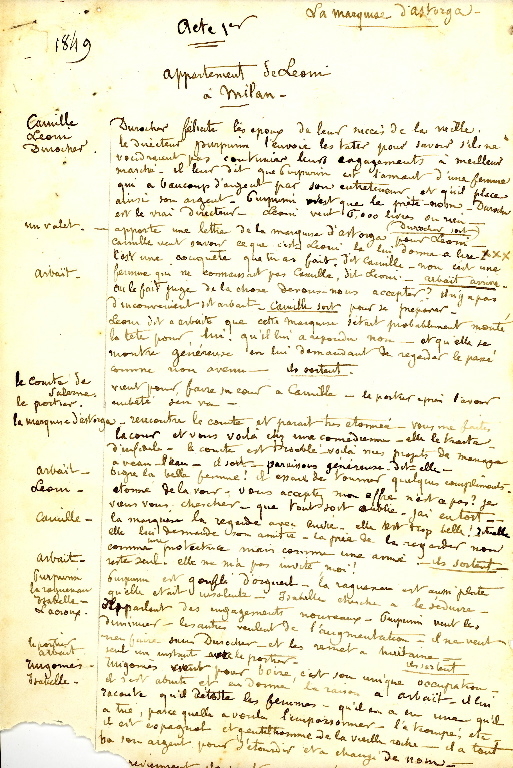 La marquise d'astorga -
1849
Acte 1er
appartement de Leoni
à Milan -
Camille
Leoni
Durocher
Durocher félicite les epoux de leur succès de la veille.
le directeur purpurin l'envoie les tater pour savoir s'ils ne
voudraient pas continuer leurs engagements à meilleur
marché - il leur dit que purpurin est l'amant d'une femme
qui a beaucoup d'argent par son entreteneur et qu'il place
ainsi son argent - purpurin n'est que le prête-nom - Durocher
est le vrai directeur - Leoni veut 6,000 livres ou rien -
Durocher sort
un valet -
apporte une lettre de la marquise d'astorga pour Leoni -
Camille veut savoir ce que c'est Leoni la lui donne à lire
c'est une conquête que tu as fait, dit Camille - non c'est une
femme qui ne connaissait pas Camille, dit Leoni - arbait arrive -
arbait -
on le fait juge de la chose devons-nous accepter? il n'y a pas
d'inconvenient dit arbait - Camille sort pour se preparer -
Leoni dit à arbait que cette marquise s'était probablement monté
la tête pour lui! qu'il lui a repondu non - et qu'elle se
montre généreuse en lui demandant de regarder le passé
comme non avenu - ils sortent
le comte de
le portier.
vient pour faire sa cour à Camille - le portier après l'avoir
embêté s'en va -
la marquise d'astorga - rencontre le comte, et parait très etonnée - vous me faites
la cour et vous voilà chez une comedienne - elle le traite
d'infidèle - le comte est troublé - voilà nos projets de mariage
à veau l'eau - il sort - paraissons généreuse dit-elle -
arbait -
bigre la belle femme! il essaie de tourner quelques compliments -
Leoni -
etonné de la voir - vous acceptez mon offre n'est-ce pas? je
viens vous chercher - que tout soit oublié - j'ai eu tort -
Camille -
la marquise la regarde avec envie - elle est trop belle!
elle lui demande son amitié - la prie de la regarder non
comme une protectrice mais comme une amie! ils sortent -
arbait -
reste seul - elle ne m'a pas invité moi!
Purpurin
Isabelle -
purpurin est gonflé d'orgueil -
qu'elle était insolente - Isabelle cherche à le séduire -
ils parlent des engagements nouveaux - Purpurin veut les
diminuer - les autres veulent de l'augmentation - il ne veut
rien faire sans Durocher et les remet à huitaine -
ils sortent
le portier
arbait
seul un instant avec le portier -
Isabelle -
vient pour boire, c'est son unique occupation.
il s'est abruti et en donne la raison à arbait - il lui
raconte qu'il déteste les femmes - qu'il en a eu une qu'il
a tué, parce qu'elle a voulu l'empoisonner - l'a trompé, etc
il est espagnol et gentilhomme de la vieille roche - il a tout
bu son argent pour s'étourdir et a changé de nom -